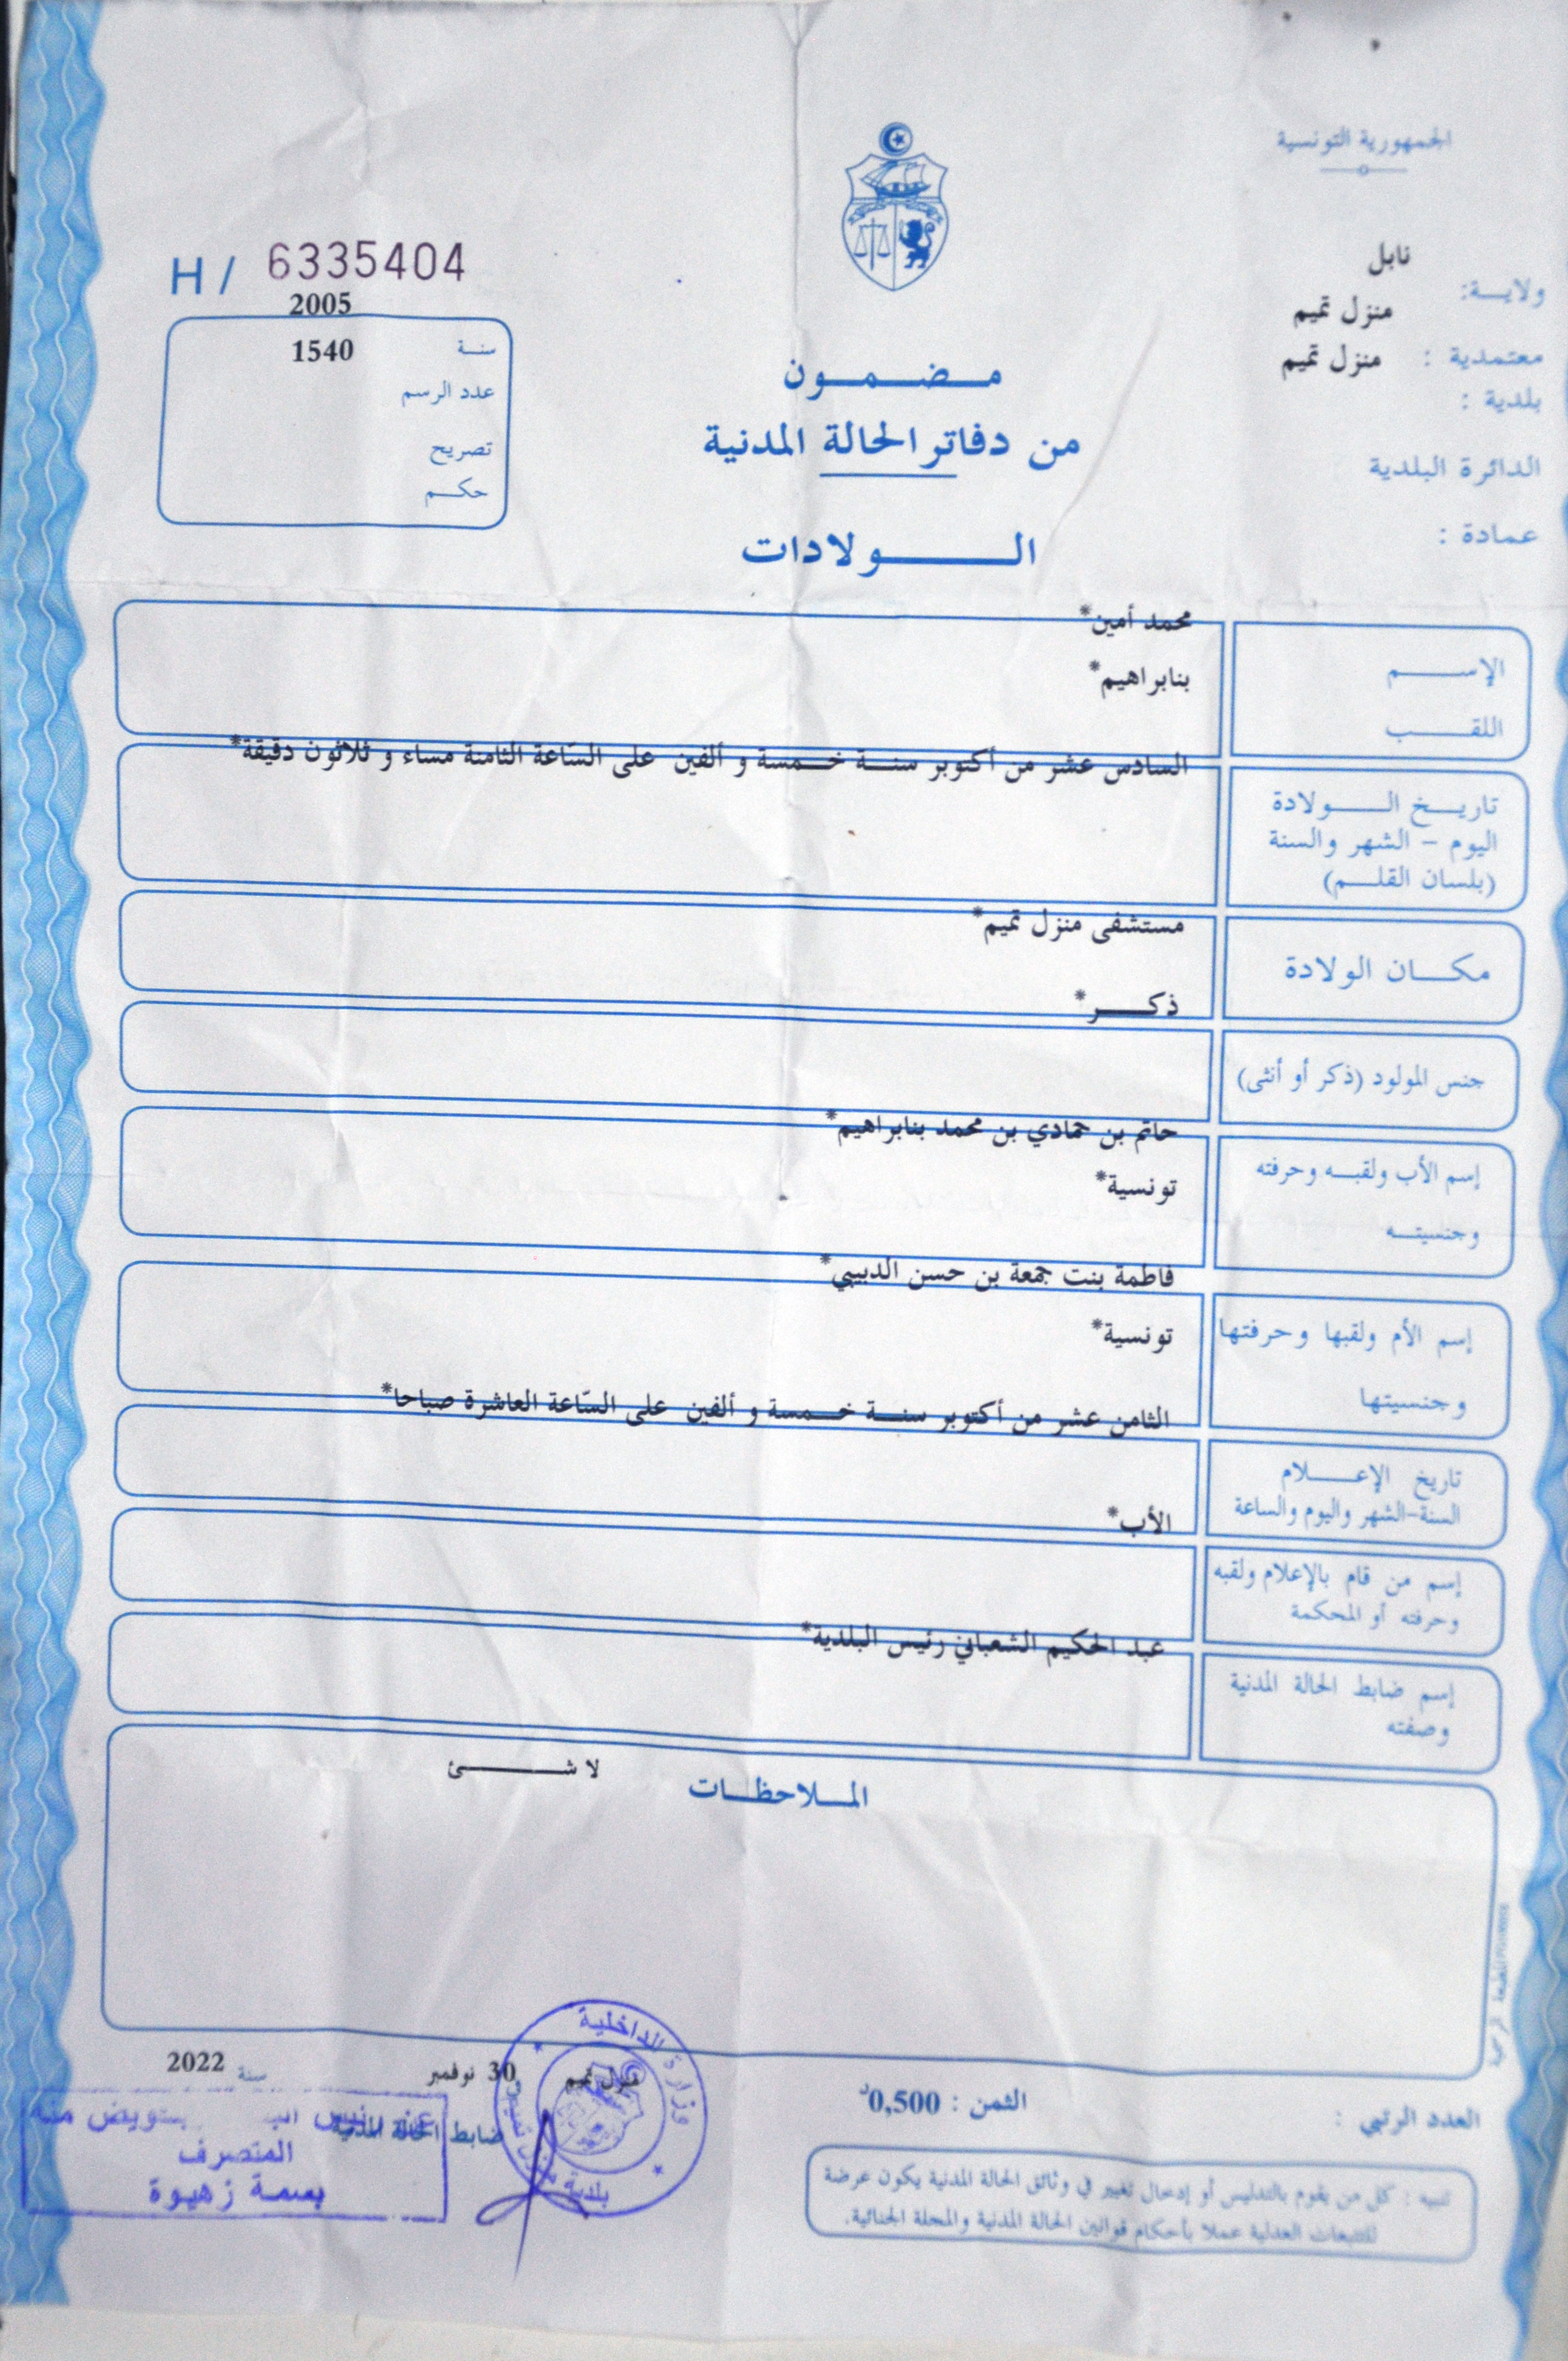 الجمهورية التونسية
نابل
ولايـــة:
منزل تميم
معتمدية : منزل تميم
بلدية :
الدائرة البلدية
عمادة :
H / 6335404
2005
سنـة 1540
عدد الرسم
تصريح
حكـــم
مـــضـــمـــون
من دفاتر الحالة المدنية
الـــــولادات
محمد أمين*
الإســـــم
بنابراهيم*
اللقـــــب
السادس عشر من أكتوبر سنـــة خـــمسة و ألفين على السّاعة الثامنة مساء و ثلاثون دقيقة*
تاريـــخ الـــــولادة
اليوم - الشهر والسنة
(بلسان القلـــم)
مستشفى منزل تميم*
مكـــان الولادة
ذكـــــر*
جنس المولود (ذكر أو أنثى)
حاتم بن حمادي بن محمد بنابراهيم*
إسم الأب ولقبـــه وحرفته
تونسية*
وجنسيتـــه
فاطمة بنت جمعة بن حسن الدبيبي*
إسم الأم ولقبها وحرفتها
تونسية*
وجنسيتها
الثامن عشر من أكتوبر سنـــة خـــمسة و ألفين على السّاعة العاشرة صباحا*
تاريخ الإعـــــلام
السنة-الشهر واليوم والساعة
الأب*
إسم من قام بالإعلام ولقبه
وحرفته أو المحكمة
عبد الحكيم الشعباني رئيس البلدية*
إسم ضابط الحالة المدنية
وصفته
لا شـــــئ
المـــلاحظـــات
منزل تميم 30 نوفمبر سنة 2022
ضابط الحالة المدنية
عن رئيس بتويض منه
المتصرف
بسمة زهيوة
وزارة الداخلية
بلدية منزل تميم
العدد الرتبي :
الثمن : 0,500د
تنبيه : كل من يقوم بالتدليس أو إدخال تغيير في وثائق الحالة المدنية يكون عرضة
للتتبعات العدلية عملا بأحكام قوانين الحالة المدنية والمجلة الجنائية.